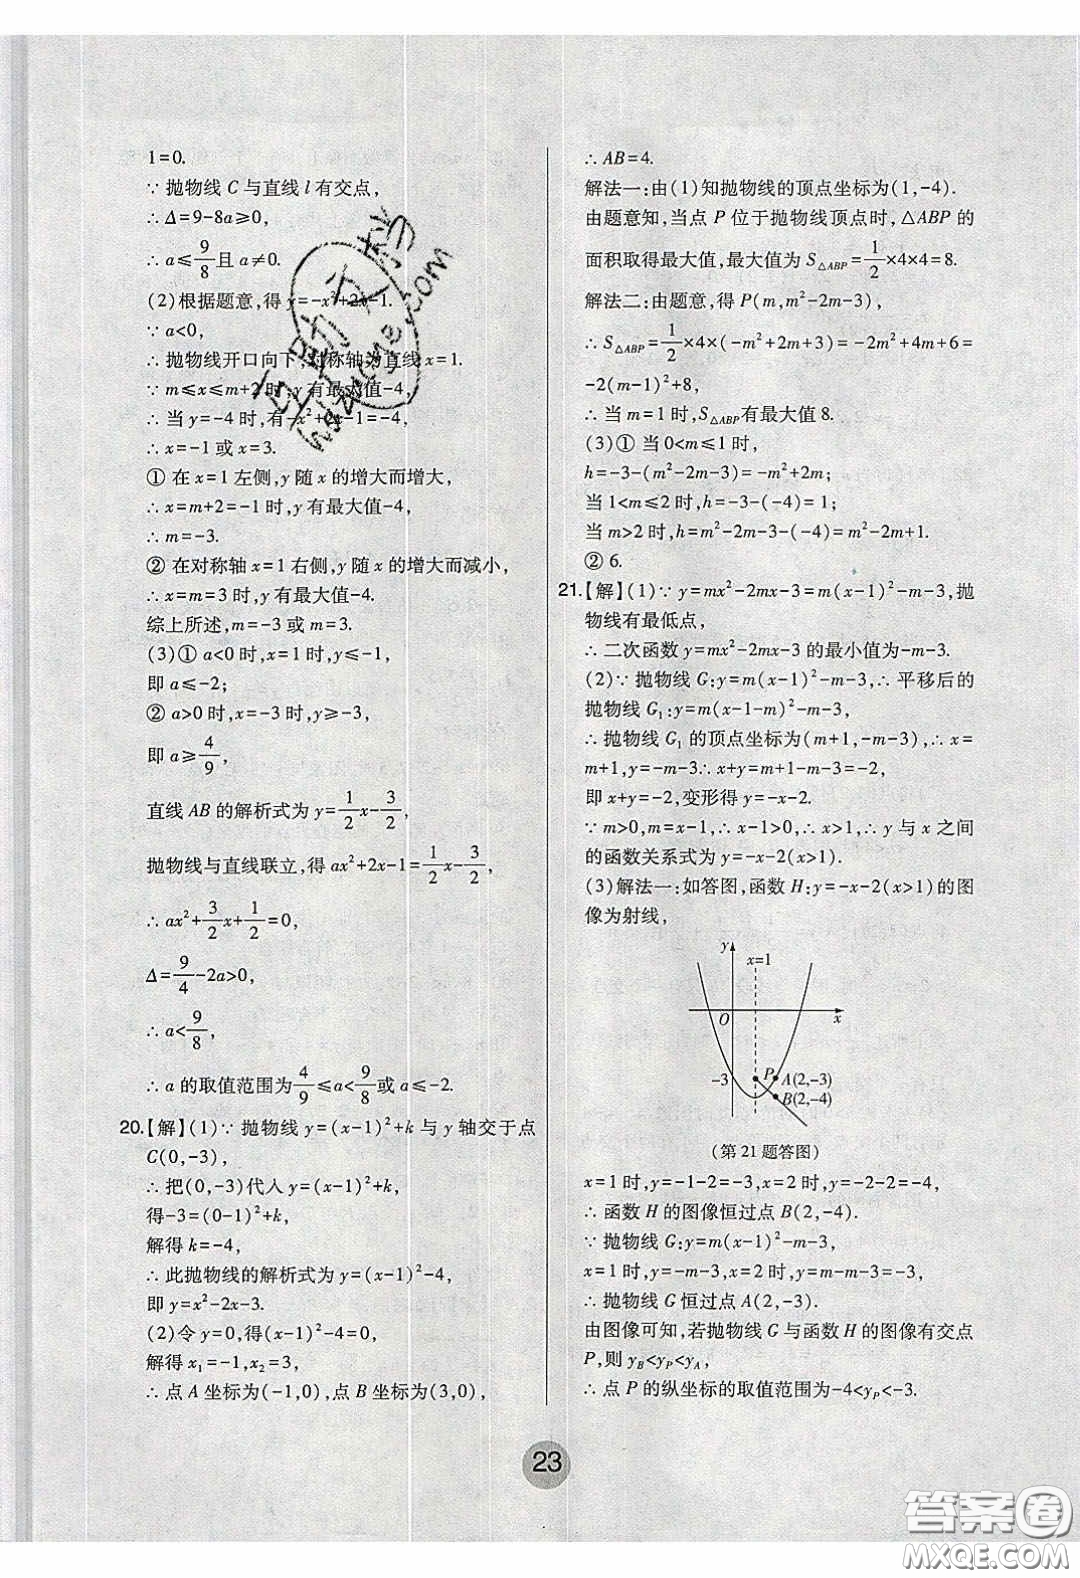 1=0.
∵ 抛物线 C 与直线 l 有交点,
∴ Δ=9-8a≥0,
∴ a≤9/8且 a≠0.
(2)根据题意,得 y=-x²+2x-1.
∵ a<0,
∴ 抛物线开口向下,对称轴为直线 x=1.
∵ m≤x≤m+2 时,y 有最大值-4,
∴ 当 y=-4 时,有-x²+2x-1=-4,
∴ x=-1 或 x=3.
① 在 x=1 左侧,y 随 x 的增大而增大,
∴ x=m+2=-1 时,y 有最大值-4,
∴ m=-3.
② 在对称轴 x=1 右侧,y 随 x 的增大而减小,
∴ x=m=3 时,y 有最大值-4.
综上所述,m=-3 或 m=3.
(3)① a<0 时,x=1 时,y≤-1,
即 a≤-2;
② a>0 时,x=-3 时,y≥-3,
即 a≥4/9,
直线 AB 的解析式为 y=1/2x-3/2,
抛物线与直线联立,得 ax²+2x-1=1/2x-3/2,
∴ ax²+3/2x+1/2=0,
Δ=9/4-2a>0,
∴ a<9/8,
∴ a 的取值范围为4/9≤a<9/8或 a≤-2.
20.【解】(1)∵ 抛物线 y=(x-1)²+k 与 y 轴交于点
C(0,-3),
∴ 把(0,-3)代入 y=(x-1)²+k,
得-3=(0-1)²+k,
解得 k=-4,
∴ 此抛物线的解析式为 y=(x-1)²-4,
即 y=x²-2x-3.
(2)令 y=0,得(x-1)²-4=0,
解得 x₁=-1,x₂=3,
∴ 点 A 坐标为(-1,0),点 B 坐标为(3,0),
∴ AB=4.
解法一:由(1)知抛物线的顶点坐标为(1,-4).
由题意知,当点 P 位于抛物线顶点时,△ABP 的
面积取得最大值,最大值为 S△ABP=1/2×4×4=8.
解法二:由题意,得 P(m,m²-2m-3),
∴ S△ABP=1/2×4×(-m²+2m+3)=-2m²+4m+6=
-2(m-1)²+8,
∴ 当 m=1 时,S△ABP有最大值 8.
(3)① 当 0<m≤1 时,
h=-3-(m²-2m-3)=-m²+2m;
当 1<m≤2 时,h=-3-(-4)=1;
当 m>2 时,h=m²-2m-3-(-4)=m²-2m+1.
② 6.
21.【解】(1)∵ y=mx²-2mx-3=m(x-1)²-m-3,抛
物线有最低点,
∴ 二次函数 y=mx²-2mx-3 的最小值为-m-3.
(2)∵ 抛物线 G:y=m(x-1)²-m-3,∴ 平移后的
抛物线 G₁:y=m(x-1-m)²-m-3,
∴ 抛物线 G₁ 的顶点坐标为(m+1,-m-3),∴ x=
m+1,y=-m-3∴ x+y=m+1-m-3=-2,
即 x+y=-2,变形得 y=-x-2.
∵ m>0,m=x-1,∴ x-1>0,∴ x>1,∴ y 与 x 之间
的函数关系式为 y=-x-2(x>1).
(3)解法一:如答图,函数 H:y=-x-2(x>1)的图
像为射线,
y
x=1
O
x
-3
P
A(2,-3)
B(2,-4)
(第 21 题答图)
x=1 时,y=-1-2=-3,x=2 时,y=-2-2=-4,
∴ 函数 H 的图像恒过点 B(2,-4).
∵ 抛物线 G:y=m(x-1)²-m-3,
x=1 时,y=-m-3,x=2 时,y=m-m-3=-3,
∴ 抛物线 G 恒过点 A(2,-3).
由图像可知,若抛物线 G 与函数 H 的图像有交点
P,则 yB<yP<yA,
∴ 点 P 的纵坐标的取值范围为-4<yP<-3.
23
答案圈
MXQE.COM